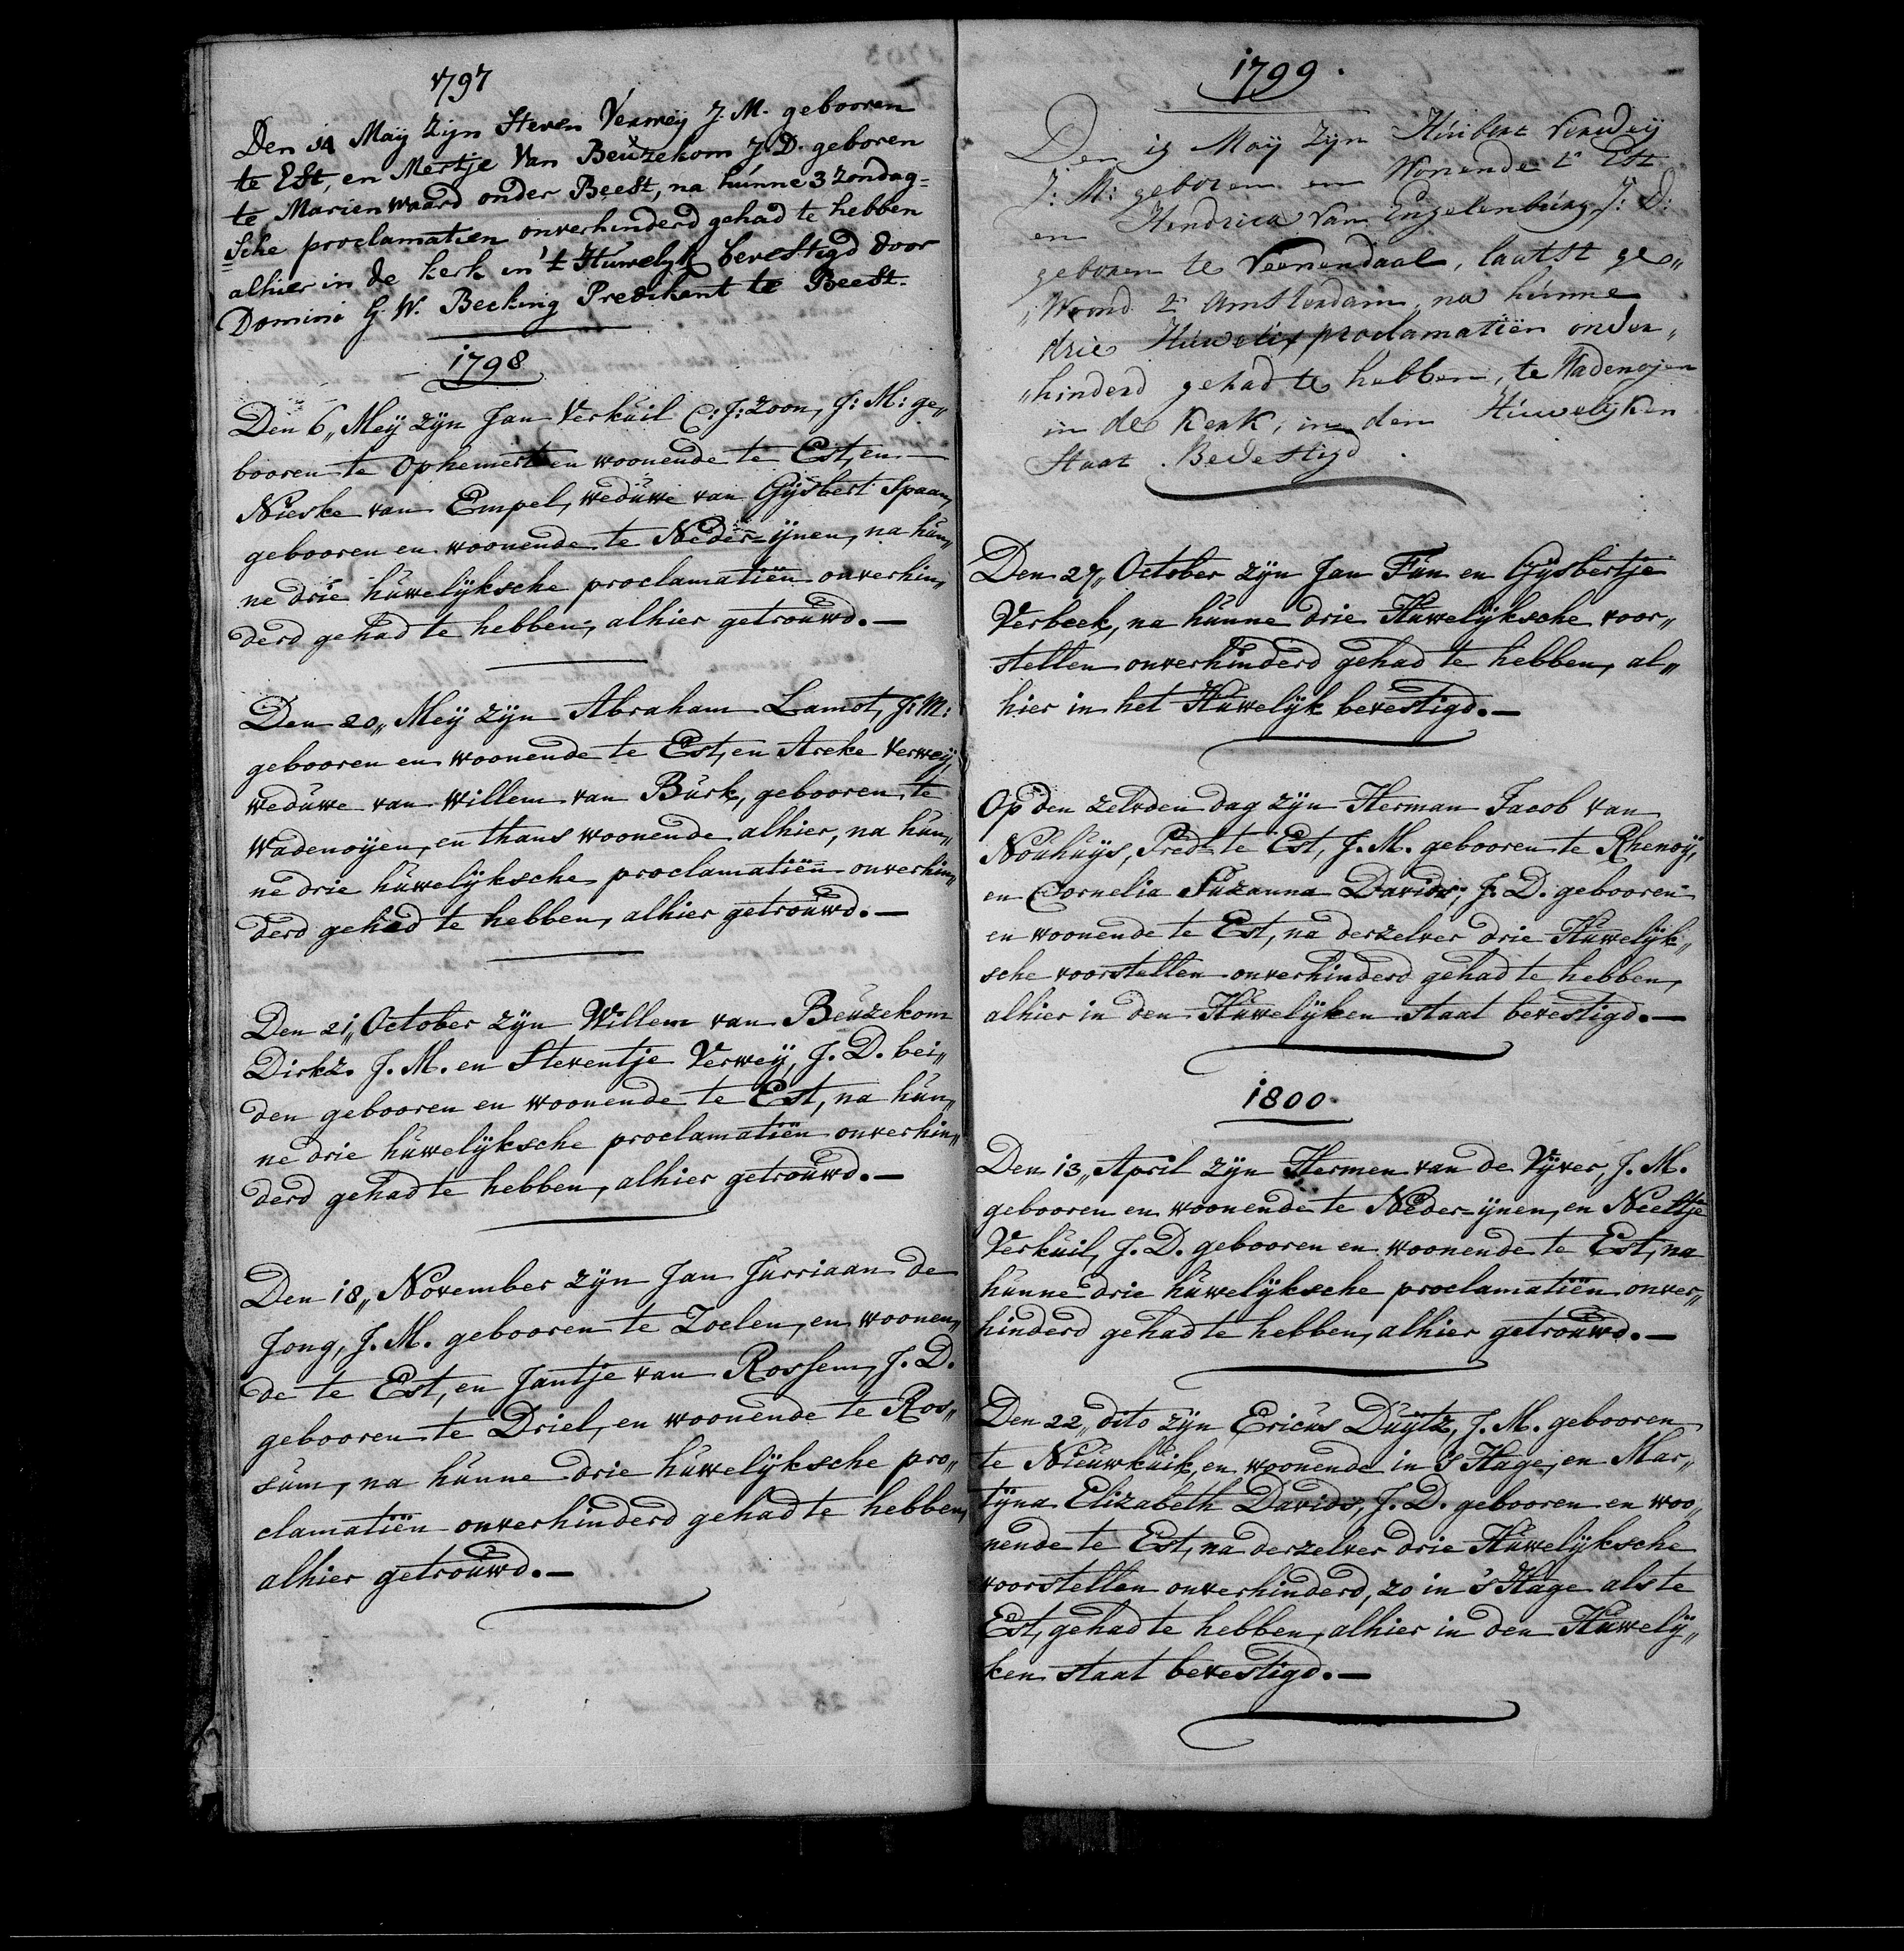 1797
Den 14 Maÿ Zijn Steven Verweij J. M. gebooren
te Est, en Mertje Van Beuzekom J. D. geboren
te Marienwaard onder Beest, na hunne 3 Zondag=
=sche proclamatien onverhinderd gehad te hebben
alhier in de kerk in 't Huwelyk bevestigd door
Domini G. W. Becking Predikant te Beest.
1798
Den 6„ Meÿ zÿn Jan Verkuil C: J: zoon, J: M: ge„
booren te Ophemert en woonende te Est, en
Nieske van Empel, weduwe van Gÿsbert Spaan,
gebooren en woonende te Neder=ijnen, na hun„
ne drie huwelÿksche proclamatiën onverhin„
derd gehad te hebben, alhier getrouwd.—
Den 20„ Meÿ zÿn Abraham Lamot, J: M:
gebooren en woonende te Est, en Areke Verweÿ,
weduwe van Willem van Burk, gebooren te
Wadenoÿen, en thans woonende alhier, na hun„
ne drie huwelÿksche proclamatiën onverhin„
derd gehad te hebben, alhier getrouwd.—
Den 21„ October zÿn Willem van Beuzekom
Dirkz. J. M. en Steventje Verweÿ, J. D. bei„
den gebooren en woonende te Est, na hun„
ne drie huwelÿksche proclamatiën onverhin„
derd gehad te hebben, alhier getrouwd.—
Den 18„ November zÿn Jan Jurriaan de
Jong, J. M. gebooren te Zoelen, en woonen„
de te Est, en Jantje van Rossem, J. D.
gebooren te Driel, en woonende te Ros„
sum, na hunne drie huwelÿksche pro„
clamatiën onverhinderd gehad te hebben,
alhier getrouwd.—
1799.
Den Maÿ Zÿn Huibert Verweÿ
J: M: geboren en Wonende t' Est
en Hendrica Van Engelenburg J: D:
geboren te Veenendaal, laatst ge„
„Woond t' Amsterdam, na hunne
drie Huwelix proclamatiën onver„
„hinderd gehad te hebben, te Wadenojen
in de Kerk, in den Huwelijken
Staat Bevestigd.
Den 27„ October zÿn Jan Fun en Gÿsbertje
Verbeek, na hunne drie Huwelÿksche voor„
stellen onverhinderd gehad te hebben, al„
hier in het Huwelÿk bevestigd.—
Op den zelvden dag zÿn Herman Jacob van
Nouhuÿs, Predt te Est, J. M. gebooren te Rhenoÿ,
en Cornelia Suzanna Davids, J. D. gebooren
en woonende te Est, na derzelver drie Huwelÿk„
sche voorstellen onverhinderd gehad te hebben,
alhier in den Huwelÿken staat bevestigd.—
1800.
Den 13„ April zÿn Hermen van de Vÿver, J. M.
gebooren en woonende te Neder=ijnen, en Neeltje
Verkuil, J. D. gebooren en woonende te Est, na
hunne drie huwelÿksche proclamatiën onver„
hinderd gehad te hebben, alhier getrouwd.—
Den 22„ dito zÿn Ericus Duÿtz, J. M. gebooren
te Nieuwkuik, en woonende in 's Hage, en Mar„
tÿna Elizabeth Davids, J. D. gebooren en woo„
nende te Est, na derzelver drie Huwelÿksche
voorstellen onverhinderd, zo in 's Hage als te
Est, gehad te hebben, alhier in den Huwelÿ„
ken staat bevestigd.—